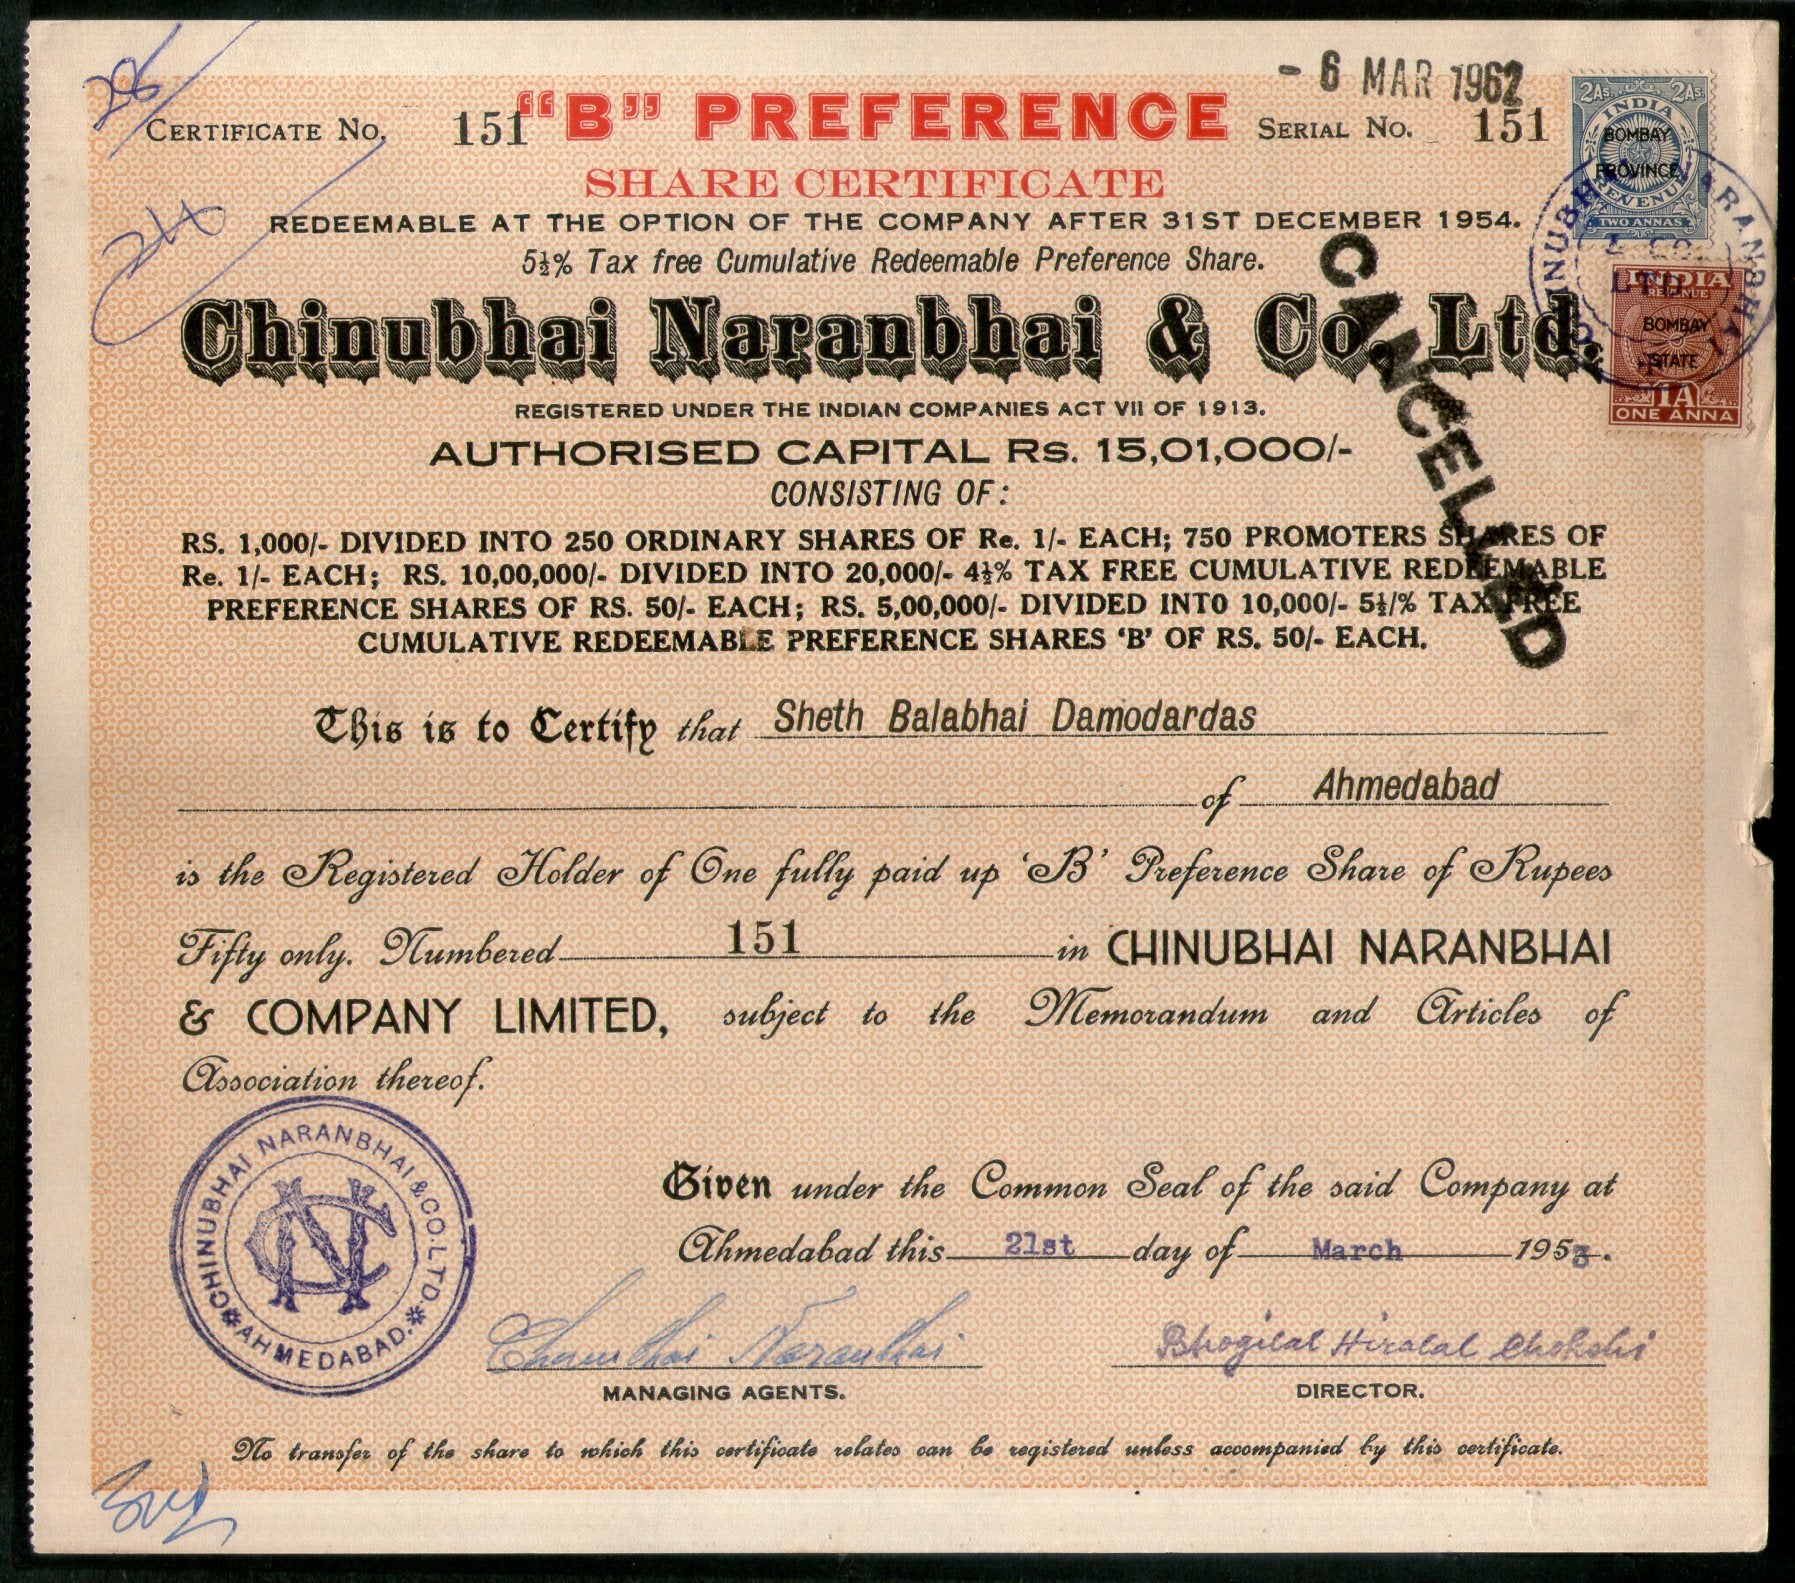 - 6 MAR 1962
CERTIFICATE No. 151 "B" PREFERENCE SERIAL No. 151
SHARE CERTIFICATE
REDEEMABLE AT THE OPTION OF THE COMPANY AFTER 31ST DECEMBER 1954.
5½% Tax free Cumulative Redeemable Preference Share.
Chinubhai Naranbhai & Co. Ltd.
REGISTERED UNDER THE INDIAN COMPANIES ACT VII OF 1913.
AUTHORISED CAPITAL Rs. 15,01,000/-
CONSISTING OF :
RS. 1,000/- DIVIDED INTO 250 ORDINARY SHARES OF Re. 1/- EACH; 750 PROMOTERS SHARES OF
Re. 1/- EACH; RS. 10,00,000/- DIVIDED INTO 20,000/- 4½% TAX FREE CUMULATIVE REDEEMABLE
PREFERENCE SHARES OF RS. 50/- EACH; RS. 5,00,000/- DIVIDED INTO 10,000/- 5½/% TAX FREE
CUMULATIVE REDEEMABLE PREFERENCE SHARES 'B' OF RS. 50/- EACH.
CANCELLED
2As. 2As.
INDIA
BOMBAY
PROVINCE
REVENUE
TWO ANNAS
INDIA
REVENUE
BOMBAY
STATE
1A
ONE ANNA
This is to Certify that Sheth Balabhai Damodardas
of Ahmedabad
is the Registered Holder of One fully paid up 'B' Preference Share of Rupees
Fifty only. Numbered 151 in CHINUBHAI NARANBHAI
& COMPANY LIMITED, subject to the Memorandum and Articles of
Association thereof.
CHINUBHAI NARANBHAI & CO. LTD.
AHMEDABAD.
CNC
Given under the Common Seal of the said Company at
Ahmedabad this 21st day of March 1953.
Chinubhai Naranbhai Bhogilal Hiralal Chokshi
MANAGING AGENTS. DIRECTOR.
No transfer of the share to which this certificate relates can be registered unless accompanied by this certificate.